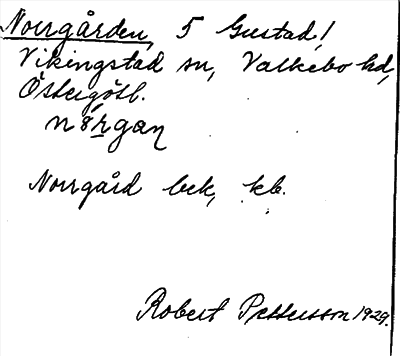 Norrgården, 5 Gustad!
Vikingstad sn, Valkebo hd,
Östergötl.
n8rgan
Norrgård bek, kb.
Robert Pettersson 1929.